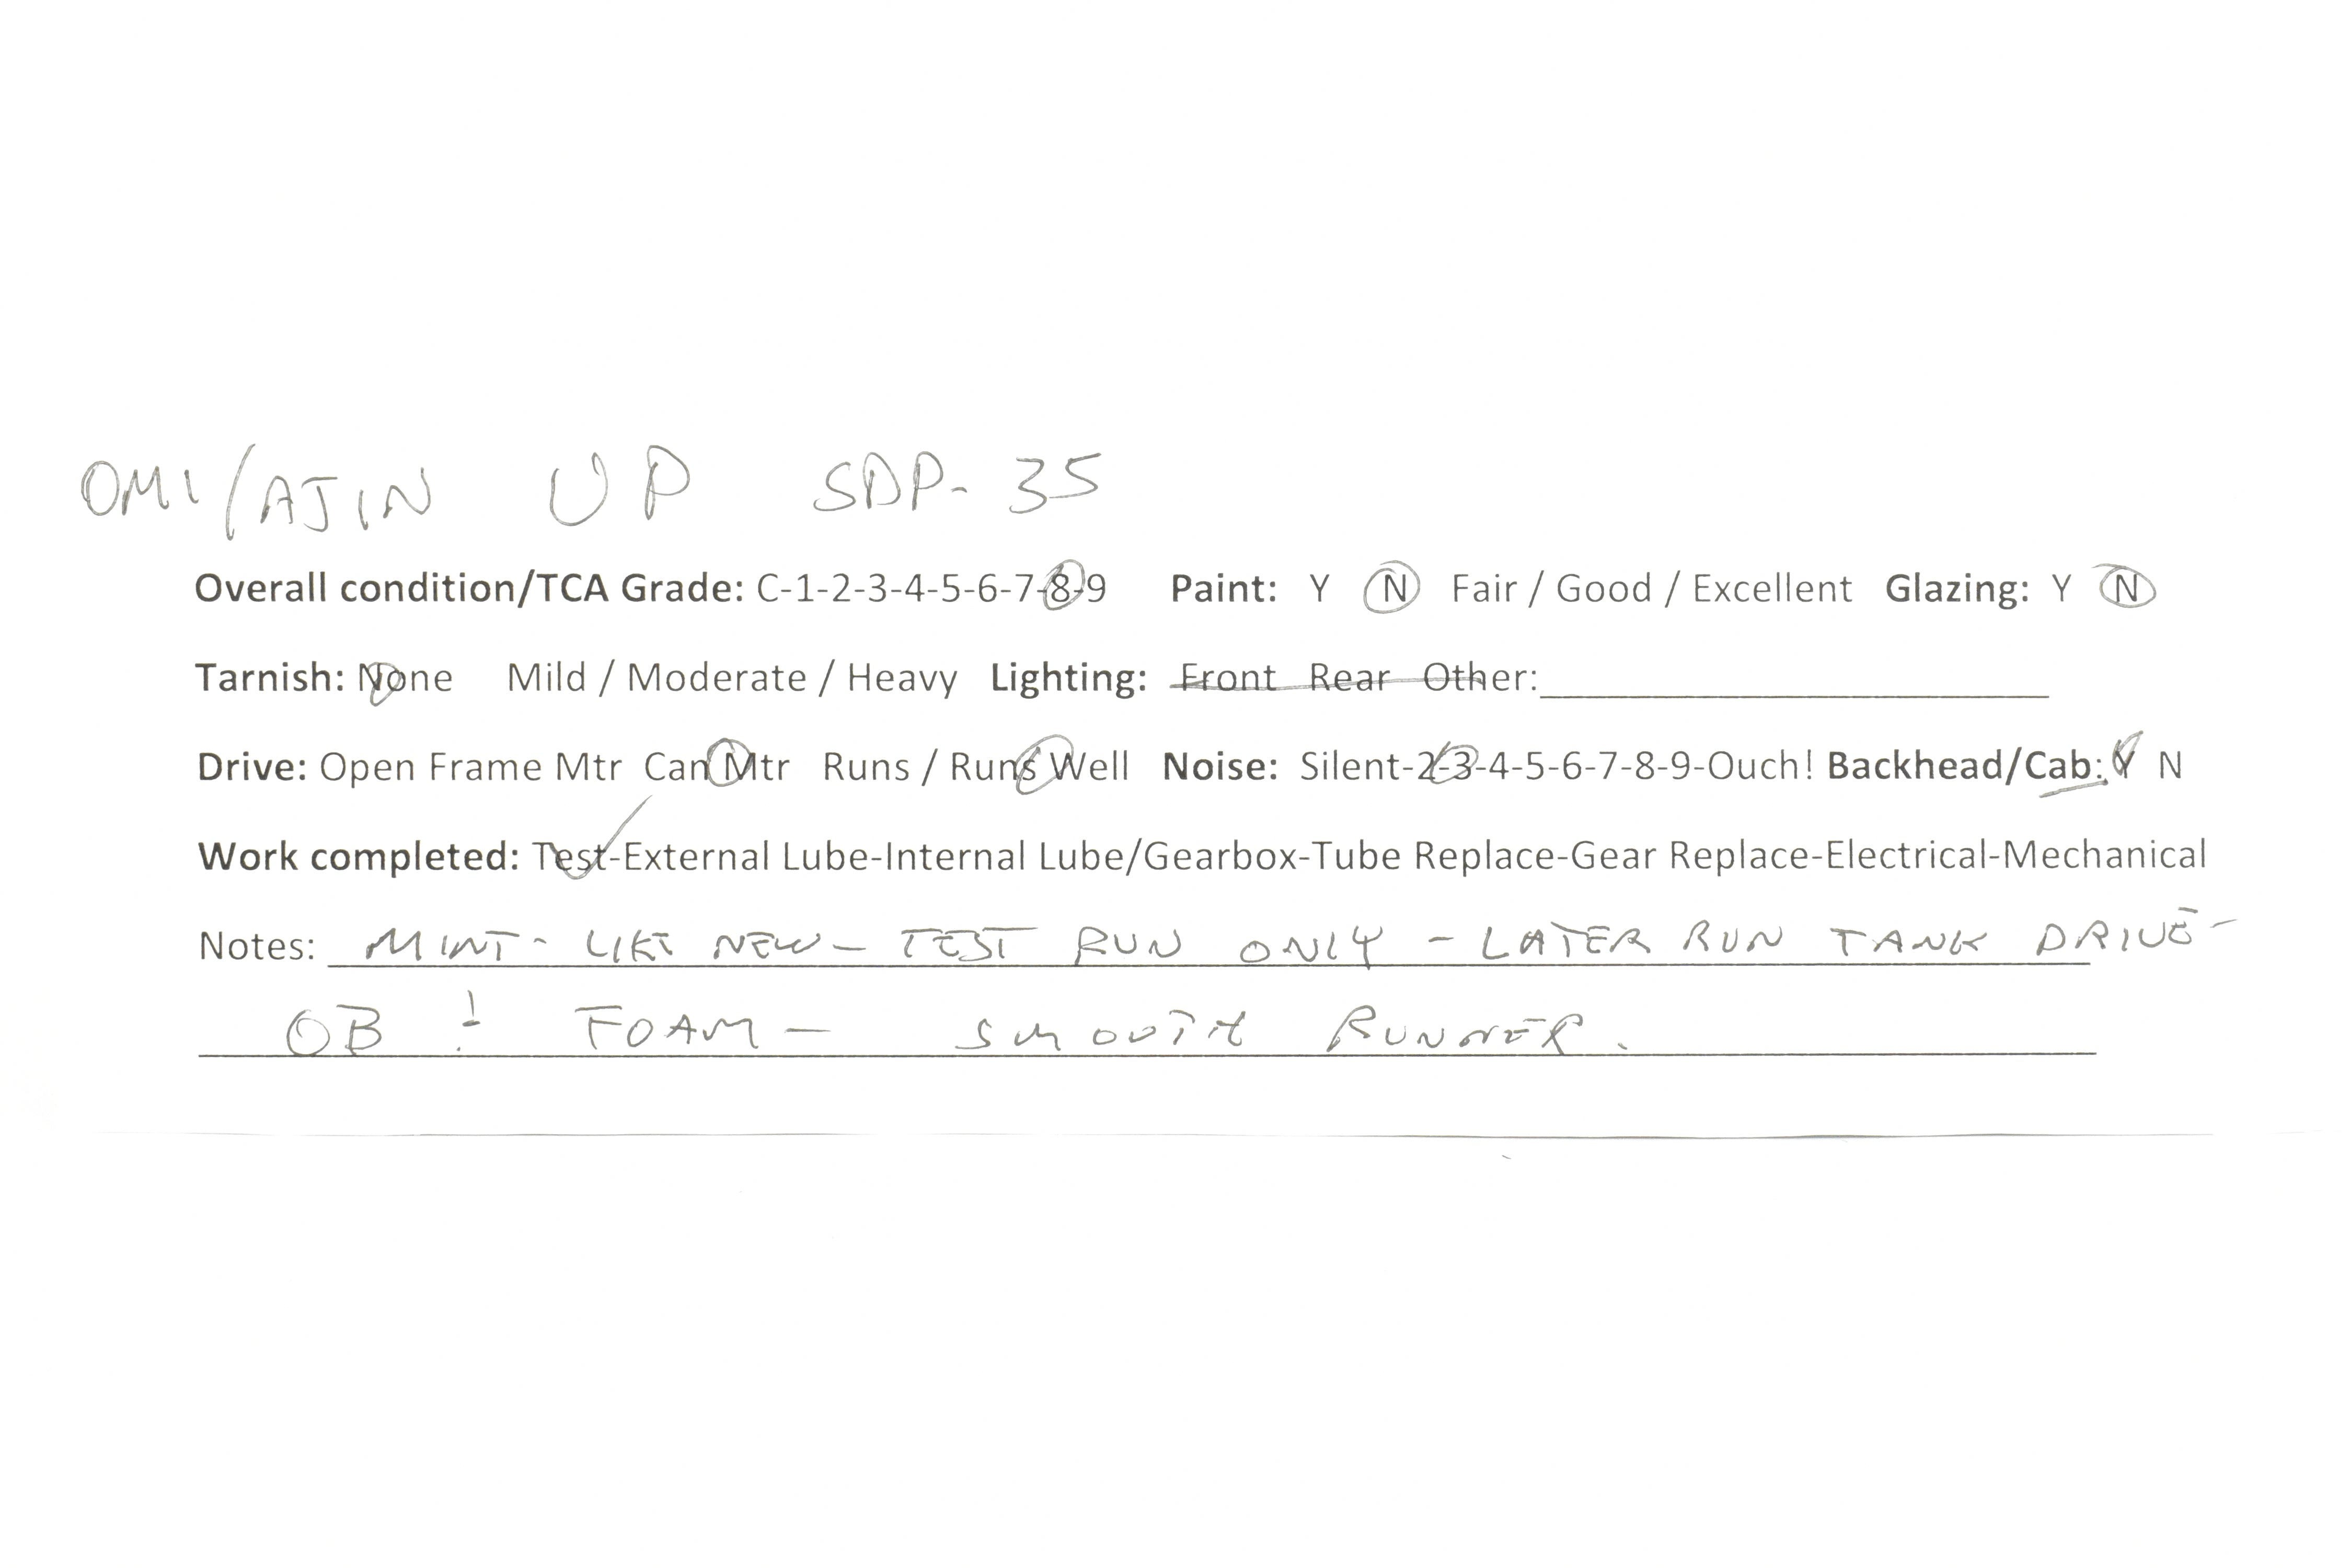 OMI/AJIN UP SDP-35
Overall condition/TCA Grade: C-1-2-3-4-5-6-7-8-9 Paint: Y N Fair / Good / Excellent Glazing: Y N
Tarnish: None Mild / Moderate / Heavy Lighting: Front Rear Other:
Drive: Open Frame Mtr Can Mtr Runs / Runs Well Noise: Silent-2-3-4-5-6-7-8-9-Ouch! Backhead/Cab: Y N
Work completed: Test-External Lube-Internal Lube/Gearbox-Tube Replace-Gear Replace-Electrical-Mechanical
Notes: MINT - LIKE NEW - TEST RUN ONLY - LATER RUN TANK DRIVE -
OB ! FOAM - SMOOTH RUNNER.